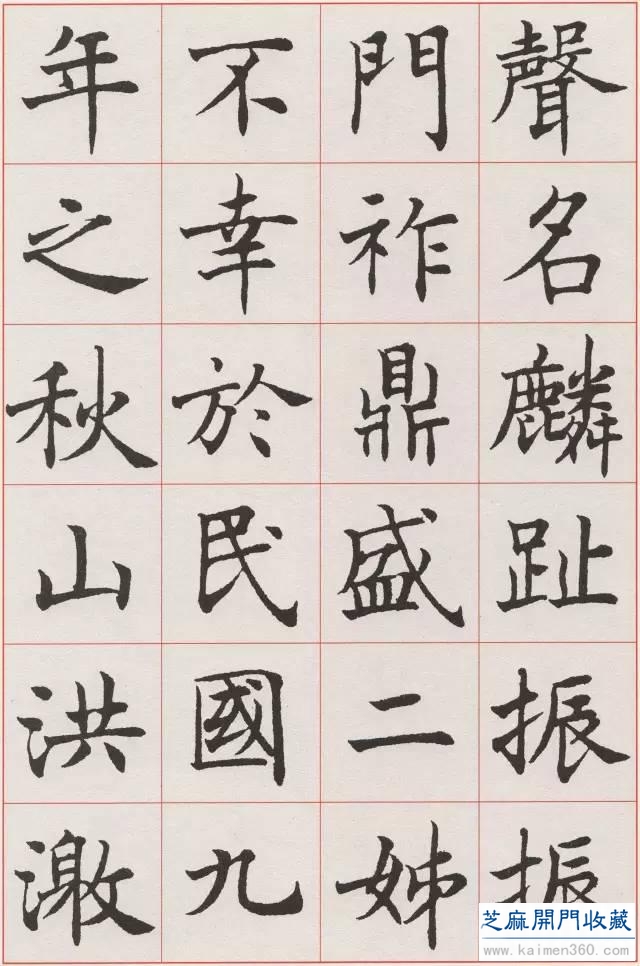 聲名麟趾振振
門祚鼎盛二姊
不幸於民國九
年之秋山洪激
芝麻開門收藏
www.kaimen360.com